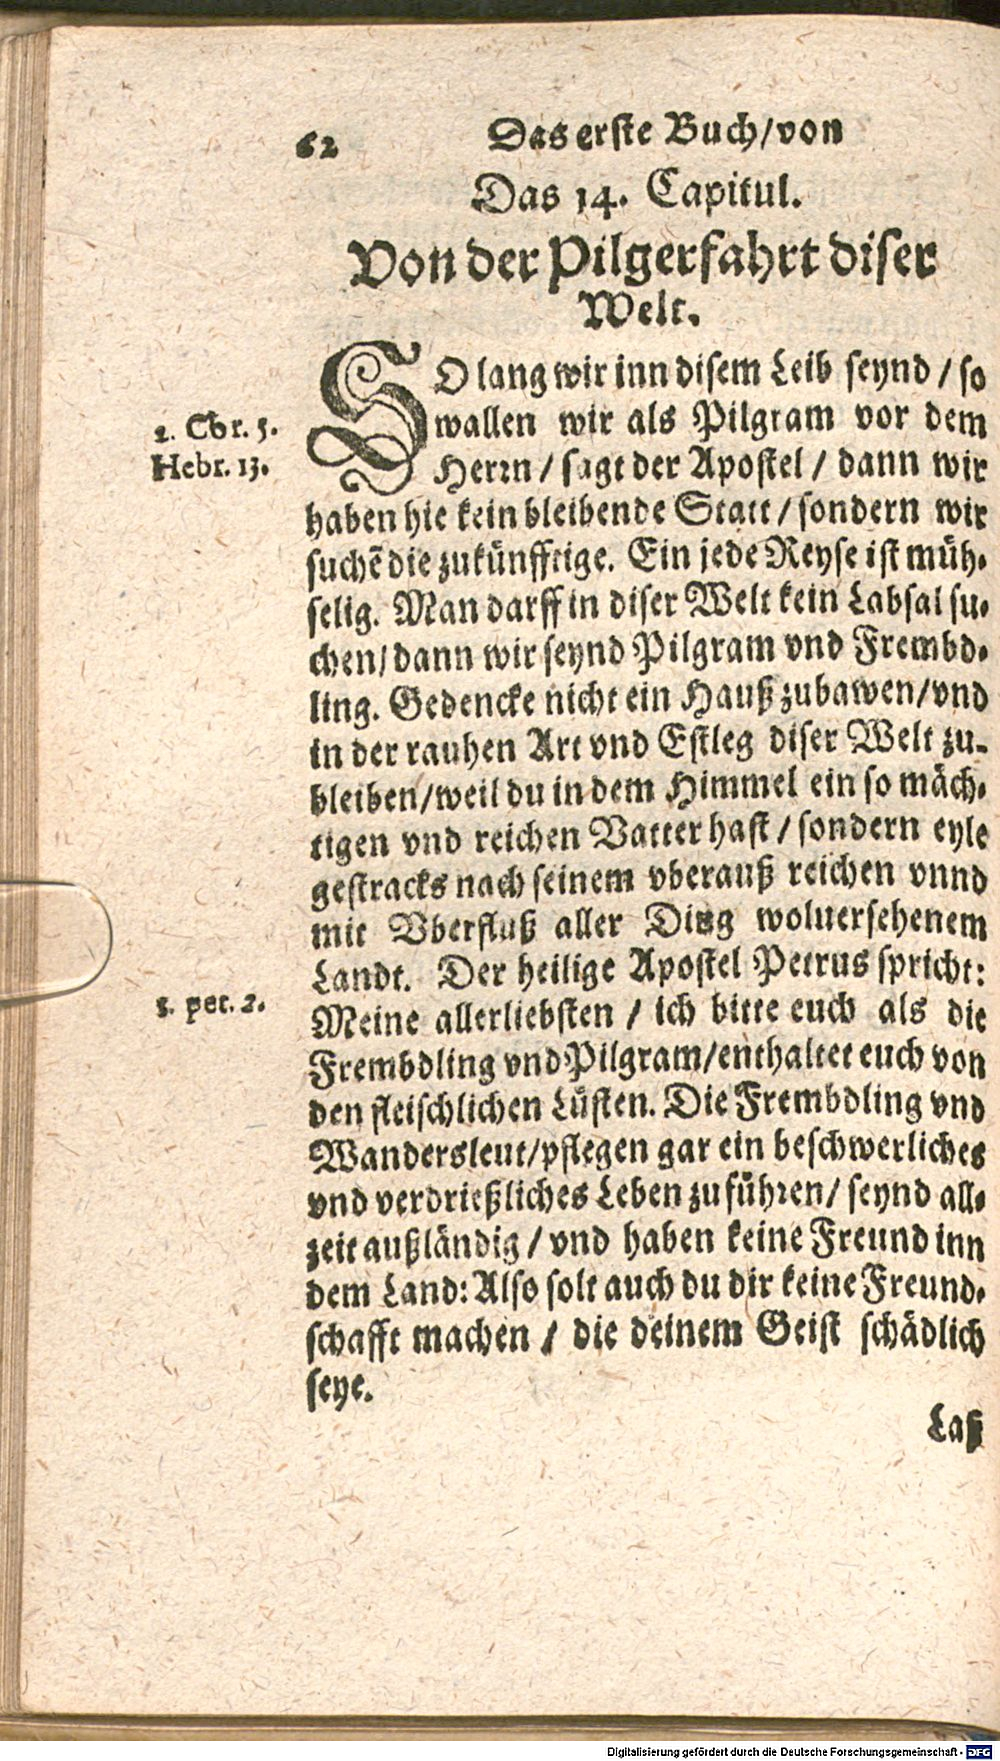 62
Das erste Buch/von
Das 14. Capitul.
Von der Pilgerfahrt diser
Welt.
SO lang wir inn disem Leib seynd / so
wallen wir als Pilgram vor dem
Herrn / sagt der Apostel / dann wir
haben hie kein bleibende Statt / sondern wir
suchē die zukünfftige. Ein jede Reyse ist müh-
selig. Man darff in diser Welt kein Labsal su-
chen/dann wir seynd Pilgram vnd Frembd-
ling. Gedencke nicht ein Hauß zubawen/vnd
in der rauhen Art vnd Estleg diser Welt zu-
bleiben/weil du in dem Himmel ein so mäch-
tigen vnd reichen Vatter hast / sondern eyle
gestracks nach seinem vberauß reichen vnnd
mit Vberfluß aller Ding woluersehenem
Landt. Der heilige Apostel Petrus spricht:
Meine allerliebsten / ich bitte euch als die
Frembdling vnd Pilgram/enthaltet euch von
den fleischlichen Lüsten. Die Frembdling vnd
Wandersleut/pflegen gar ein beschwerliches
vnd verdrießliches Leben zuführen/ seynd all-
zeit außländig / vnd haben keine Freund inn
dem Land: Also solt auch du dir keine Freund-
schafft machen / die deinem Geist schädlich
seye.
Laß
2. Cor. 5.
Hebr. 13.
1. pet. 2.
Digitalisierung gefördert durch die Deutsche Forschungsgemeinschaft - DFG